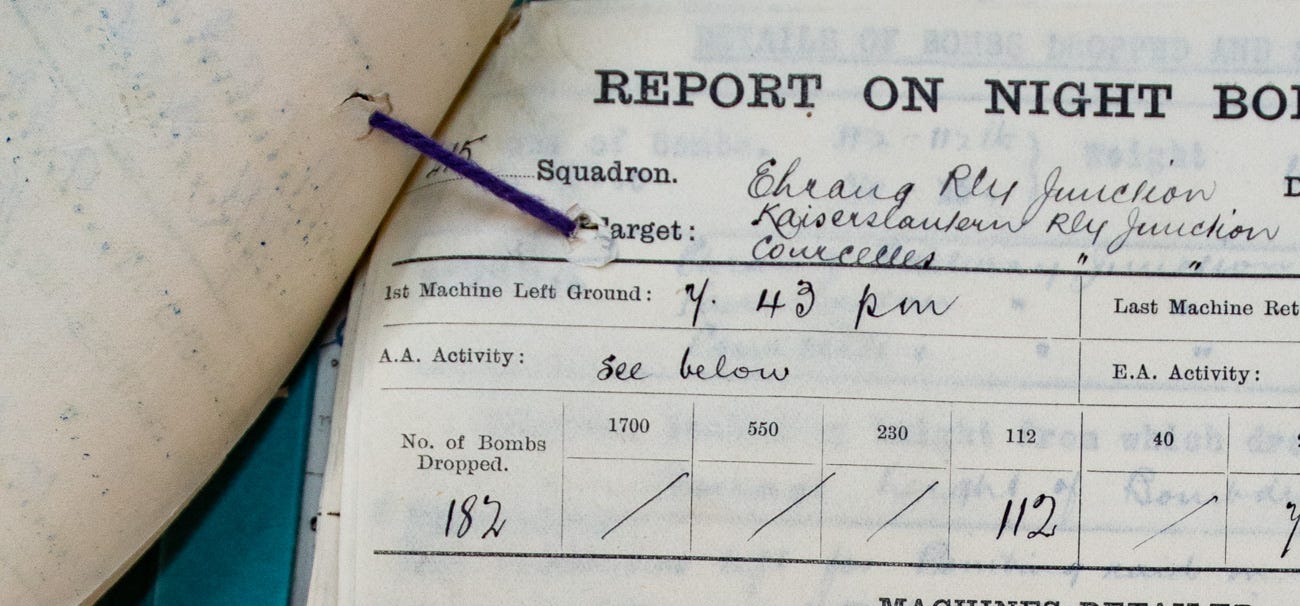 REPORT ON NIGHT BO
215 Squadron. Ehrang Rly Junction D
Target: Kaiserslautern Rly Junction
Courcelles " "
1st Machine Left Ground: 7. 43 pm Last Machine Ret
A.A. Activity: See below E.A. Activity:
No. of Bombs Dropped. 1700 550 230 112 40
182 / / / 112 /
MACHINES DETAILED